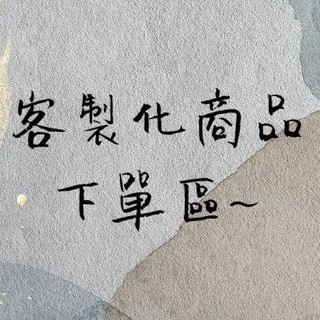 客製化商品
下單區~